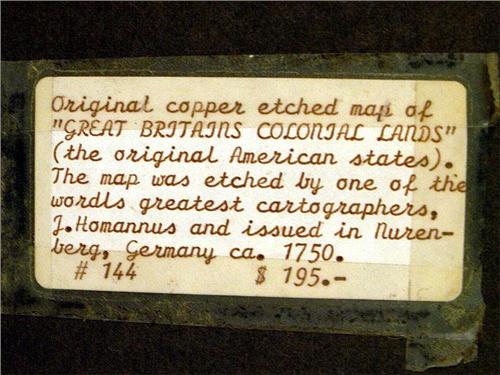 Original copper etched map of
"GREAT BRITAINS COLONIAL LANDS"
(the original American states).
The map was etched by one of the
wordls greatest cartographers,
J.Homannus and issued in Nuren-
berg, Germany ca. 1750.
# 144 $ 195.-